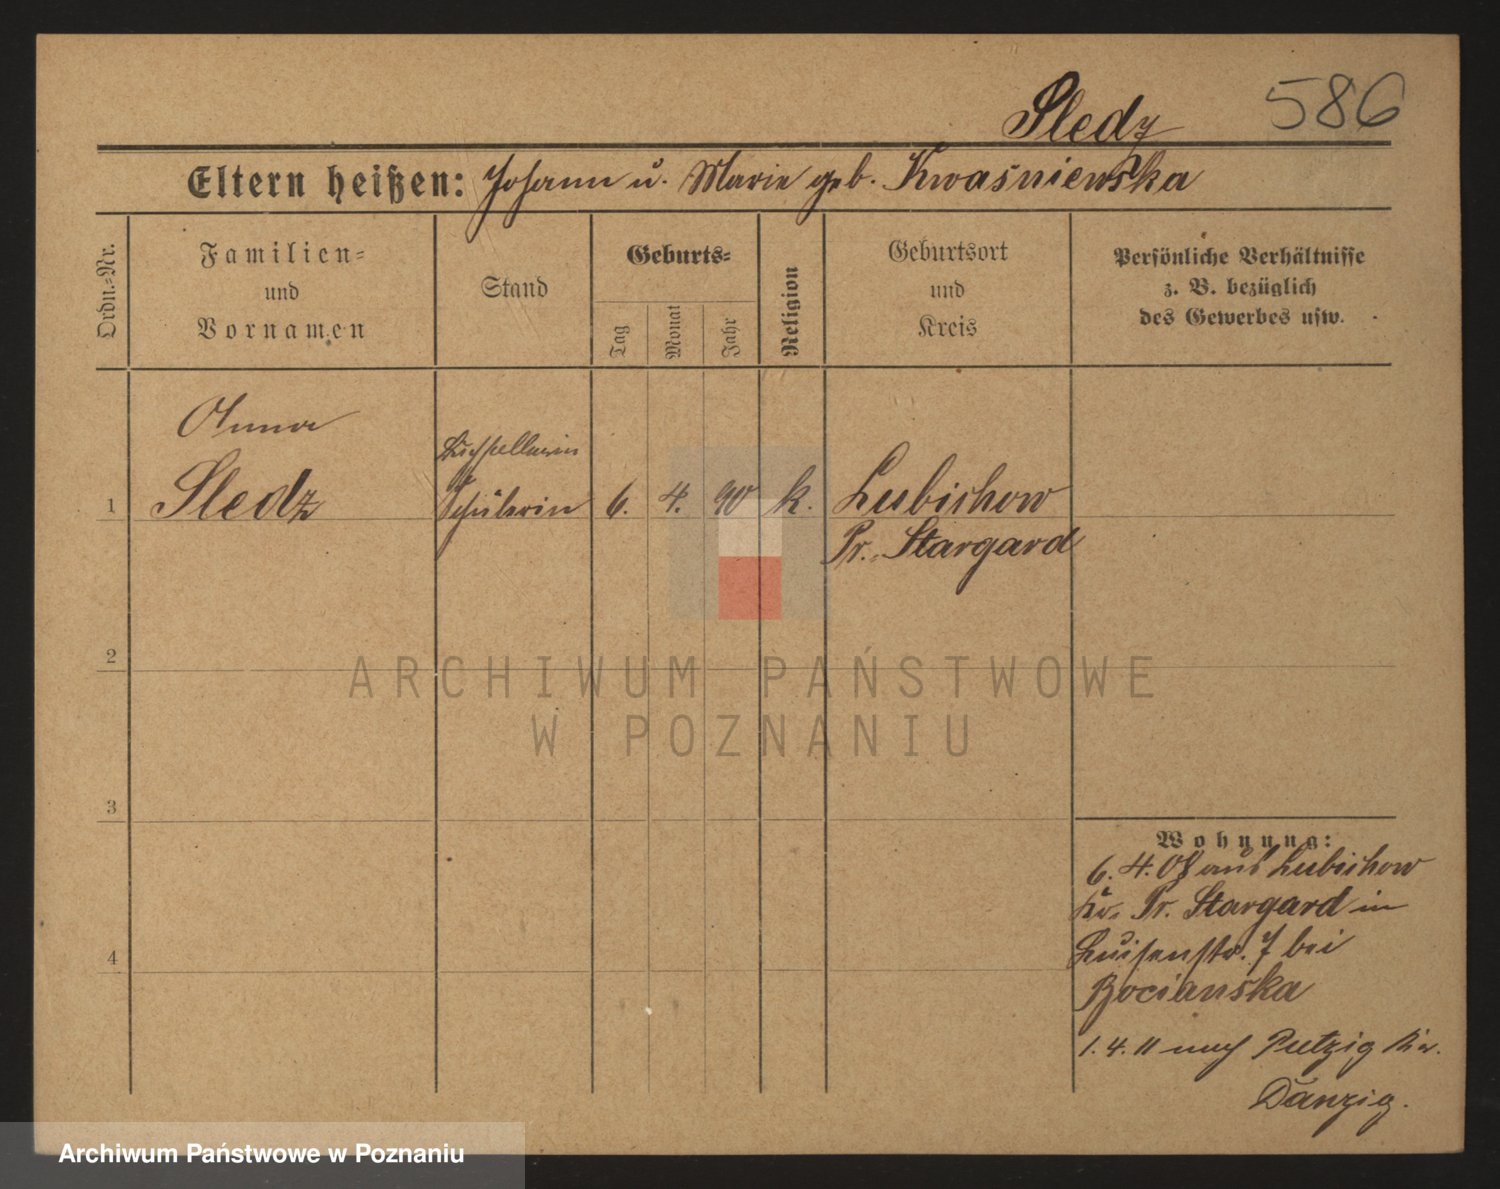 Sledz 586
Eltern heißen: Johann u. Marie geb. Kwaśniewska
Ordn.-Nr.
Familien-
und
Vornamen
Stand
Geburts-
Tag
Monat
Jahr
Religion
Geburtsort
und
Kreis
Persönliche Verhältnisse
z. B. bezüglich
des Gewerbes usw.
Anna
1 Sledz Schülerin 6. 4. 90 k. Lubichow
Pr. Stargard
2
ARCHIWUM PAŃSTWOWE
W POZNANIU
3
Wohnung:
6. 4. 08 aus Lubichow
Kr. Pr. Stargard in
Luisenstr. 7 bei
4
Bocianska
1. 4. 11 nach Putzig Kr.
Danzig.
Archiwum Państwowe w Poznaniu